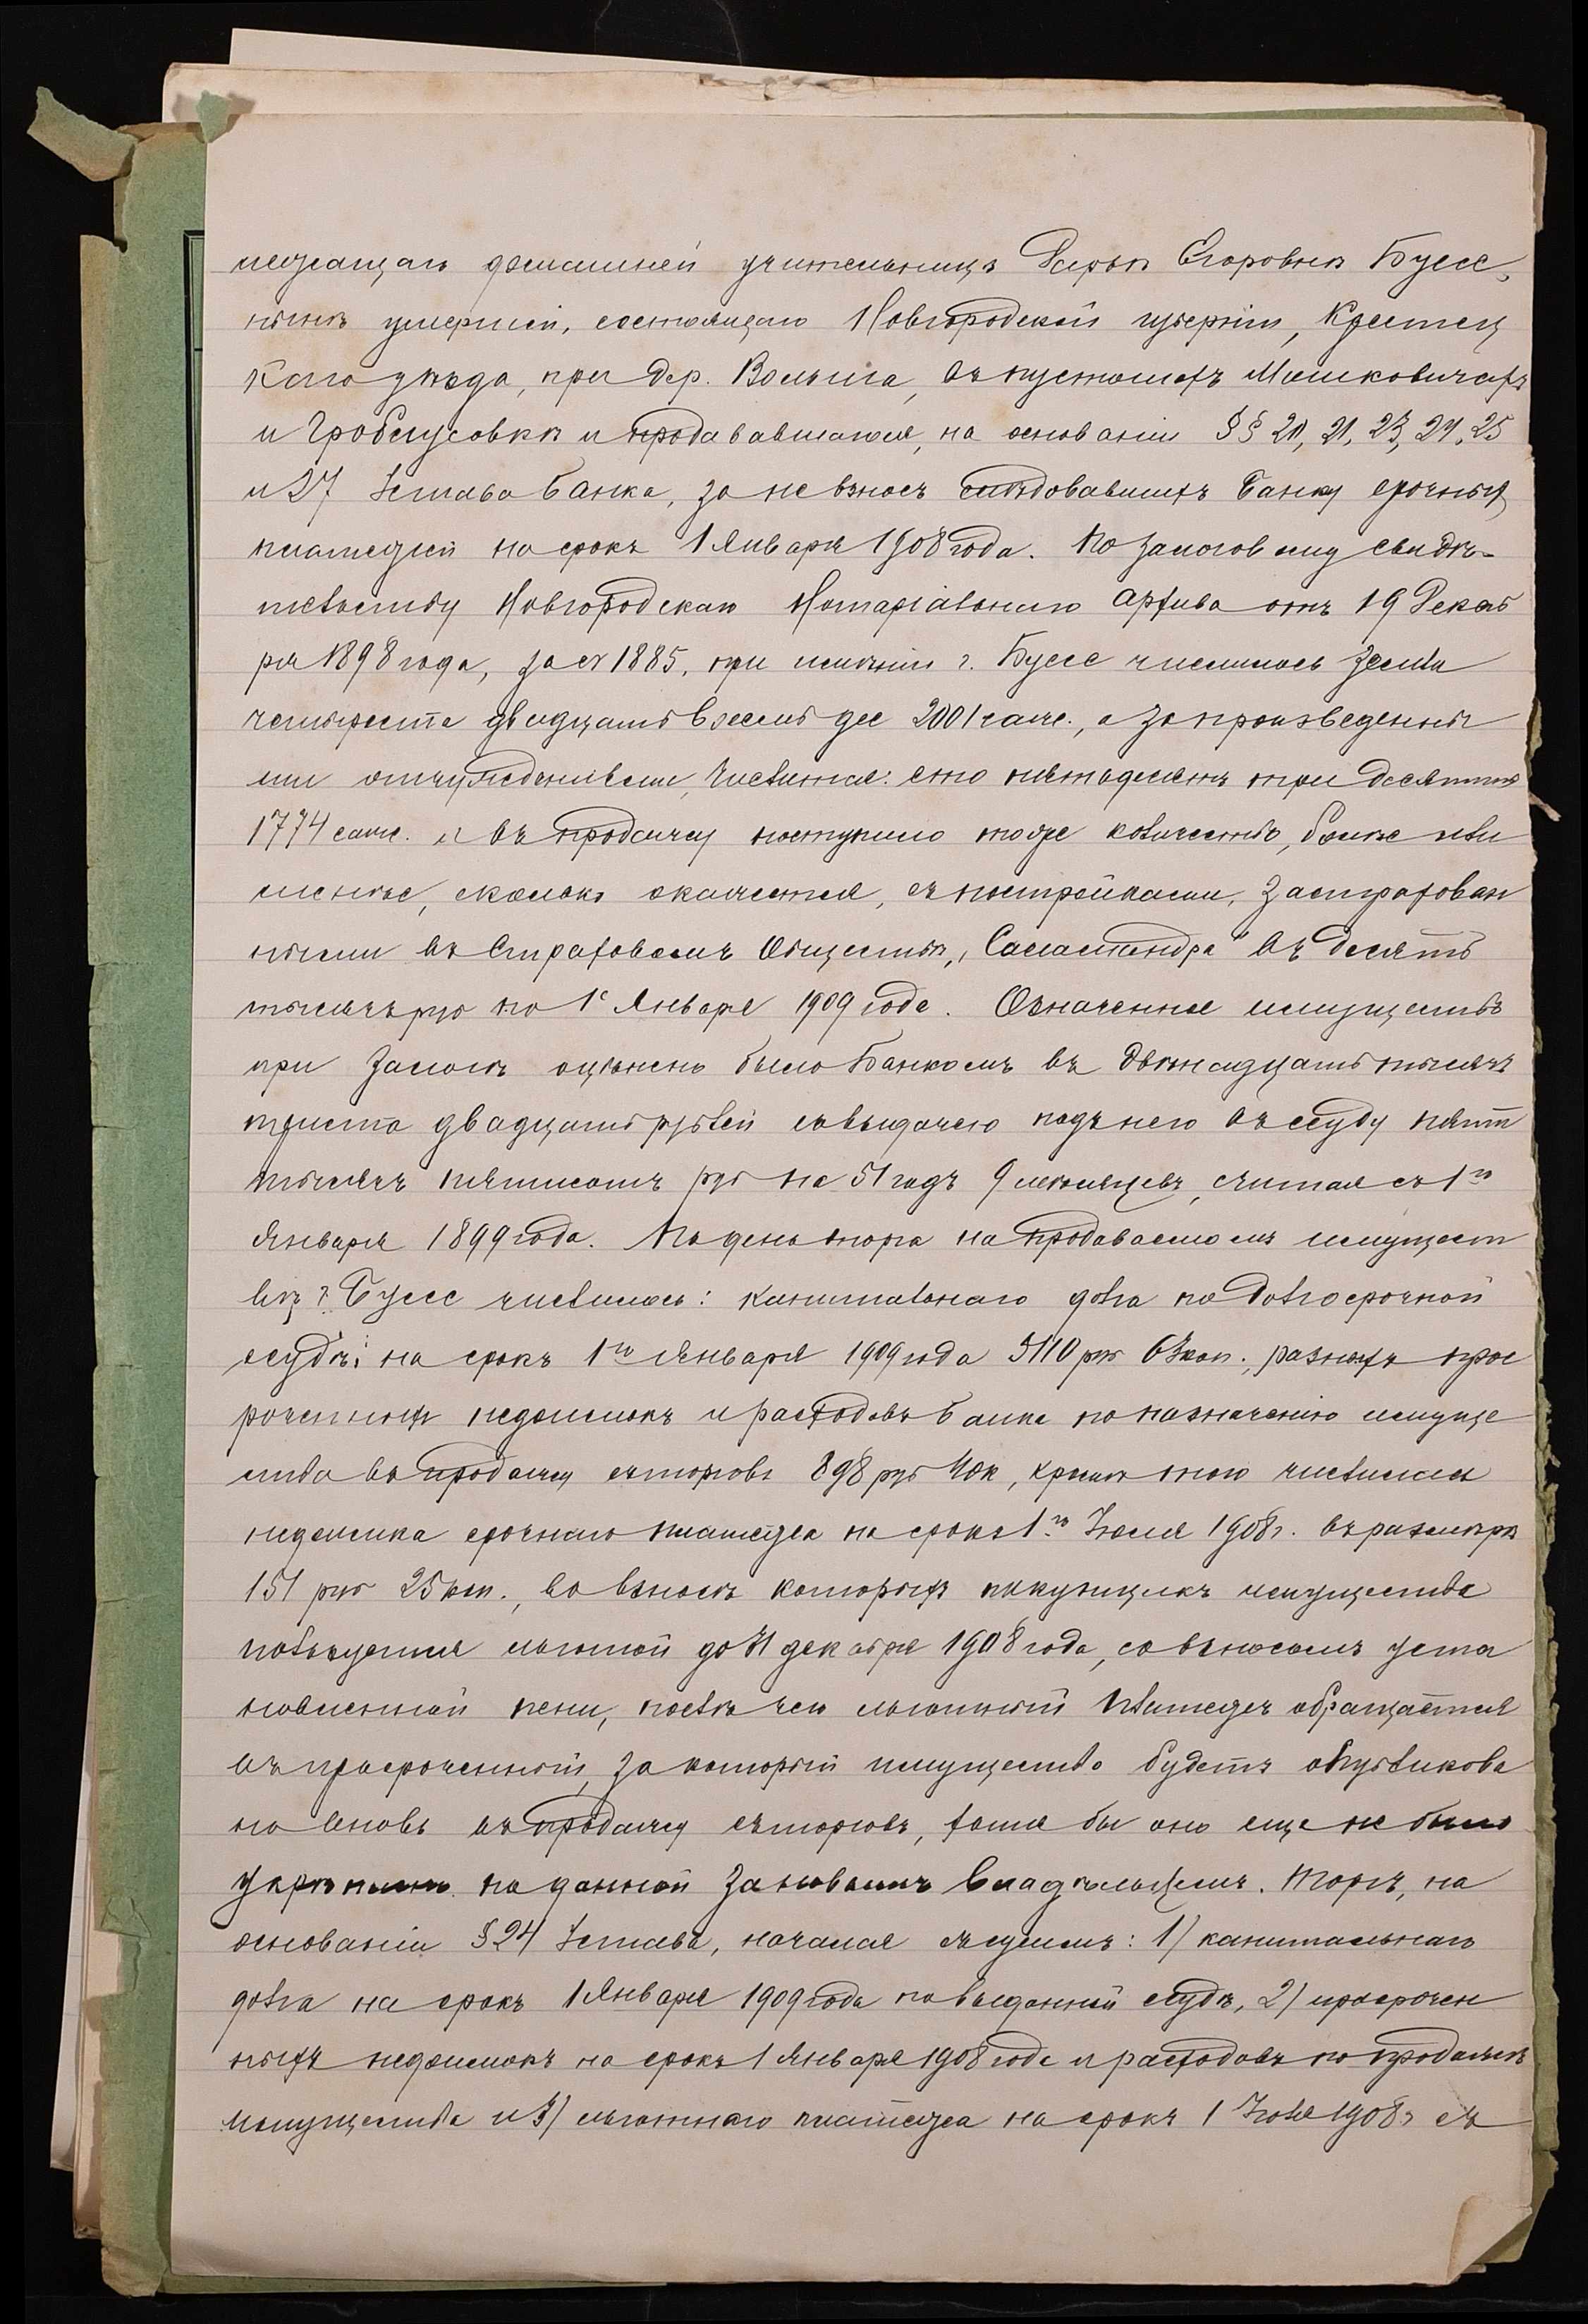 лежащаго домашней учительницѣ Дарьѣ Егоровнѣ Буссе,
нынѣ умершей, состоящаго Новгородской губерніи, Крестец
каго уѣзда, при дер. Вольма, въ пустошахъ Машковичахъ
и и продававшагося, на основаніи §§ 20, 21, 23, 24, 25
и 27 Устава Банка, за невзносъ слѣдовавшихъ Банку срочныхъ
платежей на срокъ 1 Января 1908 года. По залоговому свидѣ-
тельству Новгородскаго Нотаріальнаго Архива отъ 19 Декаб
ря 1898 года, за № 1885, при имѣніи г. Буссе числилось земли
четыреста двадцать восемь дес 2001 саж., а за произведенны
ми отчужденіями, числится: сто пятьдесятъ три десятины
1774 саж. и въ продажу поступило тоже количество, болѣе или
менѣе, сколько окажется, съ постройками, застрахован
ными въ Страховомъ Обществѣ „Саламандра“ въ десять
тысячъ руб по 1е Января 1909 года. Означенное имущество
при залогѣ оцѣнено было Банкомъ въ двѣнадцать тысячъ
триста двадцать рублей съ выдачею подъ него въ ссуду пять
тысячъ пятисотъ руб на 51 годъ 9 мѣсяцевъ, считая съ 1го
Января 1899 года. По день торга на продаваемомъ имущест
вѣ г. Буссе числилось: капитальнаго долга по долгосрочной
ссудѣ: на срокъ 1го Января 1909 года 5110 руб 63 коп., разныхъ прос
роченныхъ недоимокъ и расходовъ Банка по назначенію имуще
ства въ продажу съ торговъ 898 руб 40 к, кромѣ того числилась
недоимка срочнаго платежа на срокъ 1го Іюля 1908 г. въ размѣрѣ
151 руб 25 коп., во взносѣ которыхъ покупщикъ имущества
пользуется льготой до 31 декабря 1908 года, со взносомъ уста
новленной пени, послѣ чего льготный платежъ обращается
въ просроченный, за который имущество будетъ опубликова
но вновь въ продажу съ торговъ, хотя бы оно еще не было
укрѣплено по данной за новымъ владѣльцемъ. Торгъ, на
основаніи § 24 Устава, начался съ суммъ: 1) капитальнаго
долга на срокъ 1 Января 1909 года по выданной ссудѣ, 2) просрочен
ныхъ недоимокъ на срокъ 1 Января 1908 года и расходовъ по продажѣ
имущества и 3) льготнаго платежа на срокъ 1 Іюля 1908 г съ